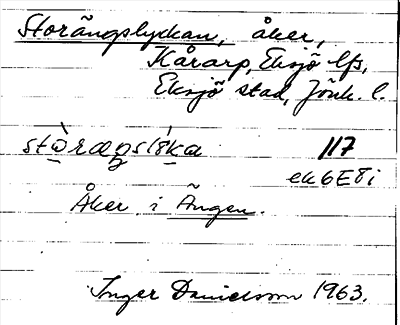 Storängslyckan, åker,
Kårarp, Eksjö lfs,
Eksjö stad, Jönk. l.
117
ek6E8i
Åker i Ängen.
Inger Danielsson 1963.